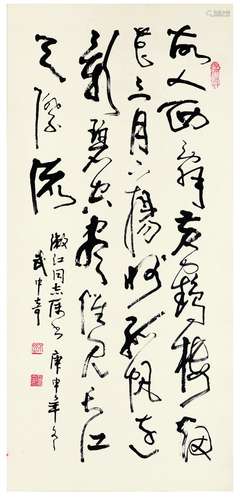 故人西辞黄鹤楼烟
花三月下扬州孤帆远
影碧空尽惟见长江
天际流
漱江同志属书 庚申年冬
武中奇